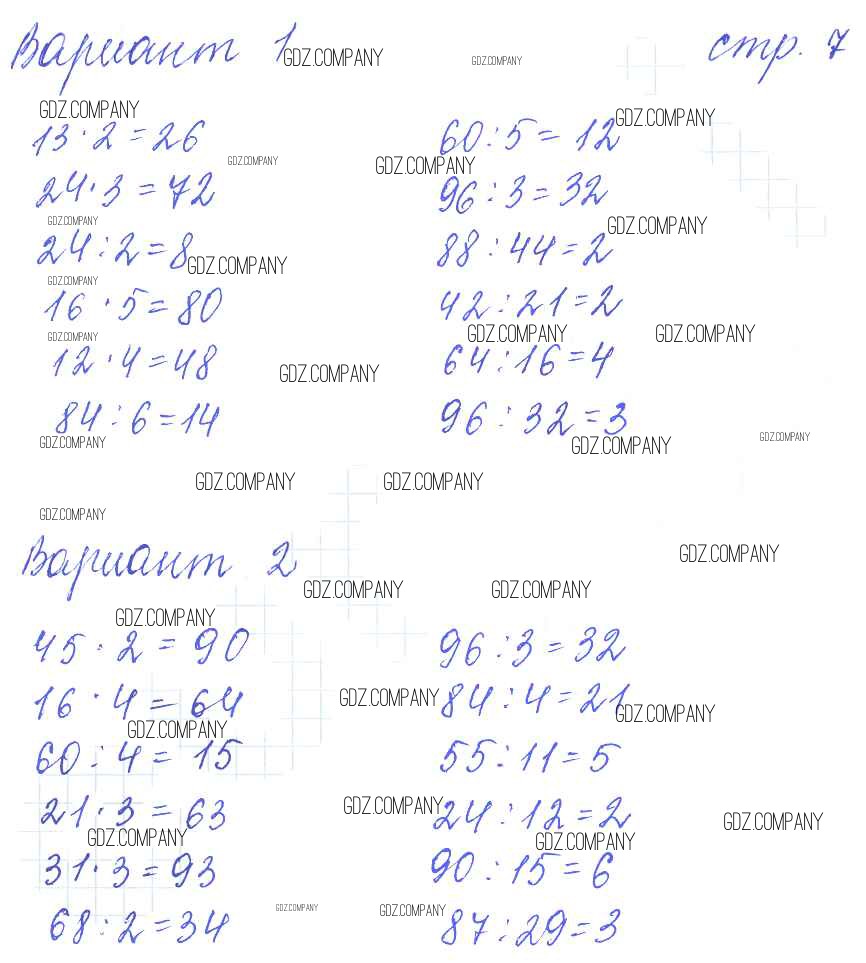 Вариант 1 GDZ.COMPANY GDZ.COMPANY стр. 7
GDZ.COMPANY GDZ.COMPANY
13 · 2 = 26 60 : 5 = 12
GDZ.COMPANY GDZ.COMPANY
24 · 3 = 72 96 : 3 = 32
GDZ.COMPANY GDZ.COMPANY
24 : 2 = 8 88 : 44 = 2
GDZ.COMPANY
GDZ.COMPANY
16 · 5 = 80 42 : 21 = 2
GDZ.COMPANY GDZ.COMPANY GDZ.COMPANY
12 · 4 = 48 64 : 16 = 4
GDZ.COMPANY
84 : 6 = 14 96 : 32 = 3
GDZ.COMPANY GDZ.COMPANY GDZ.COMPANY
GDZ.COMPANY GDZ.COMPANY
GDZ.COMPANY
Вариант 2 GDZ.COMPANY
GDZ.COMPANY GDZ.COMPANY
GDZ.COMPANY
45 · 2 = 90 96 : 3 = 32
16 · 4 = 64 GDZ.COMPANY 84 : 4 = 21
GDZ.COMPANY GDZ.COMPANY
60 : 4 = 15 55 : 11 = 5
21 · 3 = 63 GDZ.COMPANY 24 : 12 = 2 GDZ.COMPANY
GDZ.COMPANY GDZ.COMPANY
31 · 3 = 93 90 : 15 = 6
GDZ.COMPANY GDZ.COMPANY
68 : 2 = 34 87 : 29 = 3